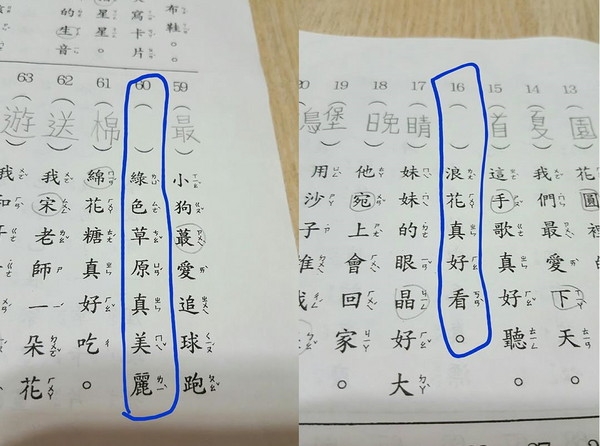 布鞋。
寫卡片。
星星。
的生音
59（最）小狗蕞愛追球跑
60（ ）綠色草原真美麗
61（棉）綿花糖真好吃。
62（送）我宋老師一朵花
63（遊）我和
13（園）花圓裡
14（夏）我們最愛下天。
15（首）這手歌真好聽。
16（ ）浪花真好看。
17（睛）妹妹的眼晶好大
18（晚）他宛上會回家。
19（堡）用沙子